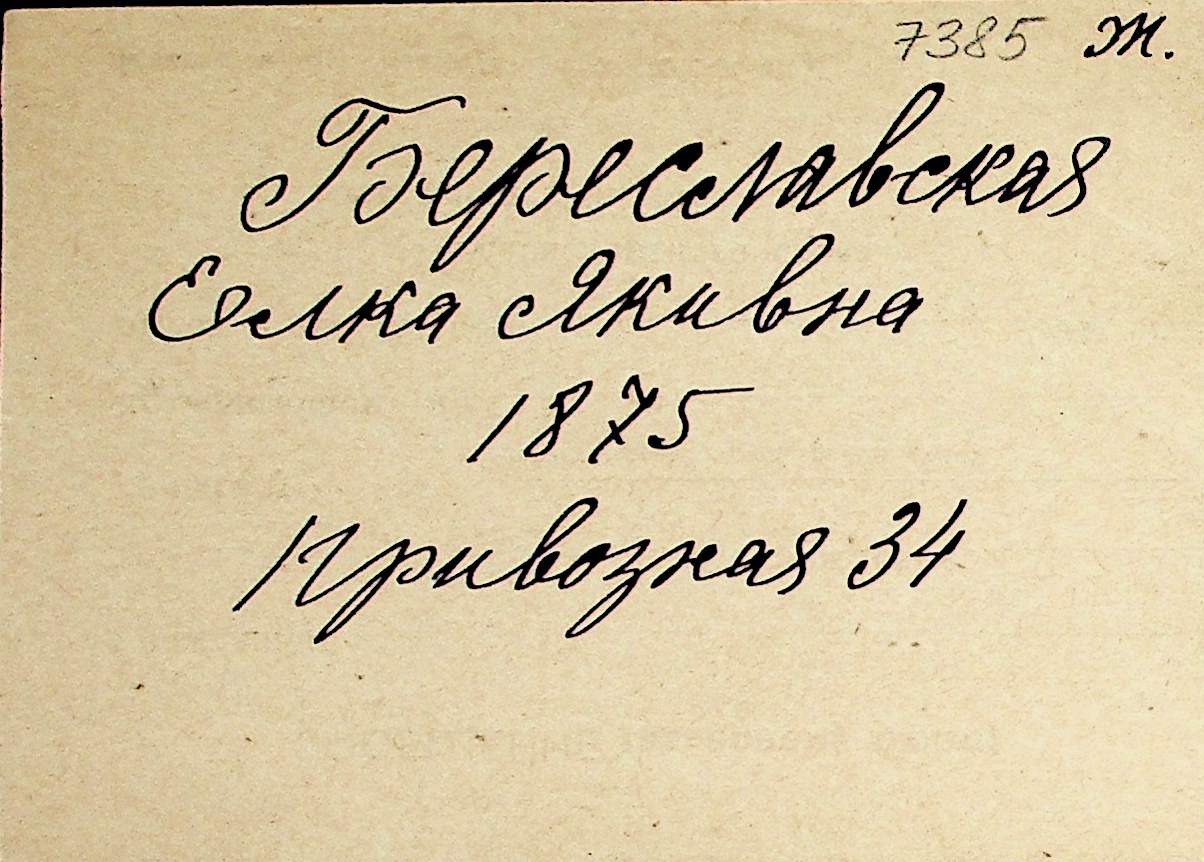 7385 Ж.
Береславская
Елка Якивна
1875
Привозная 34